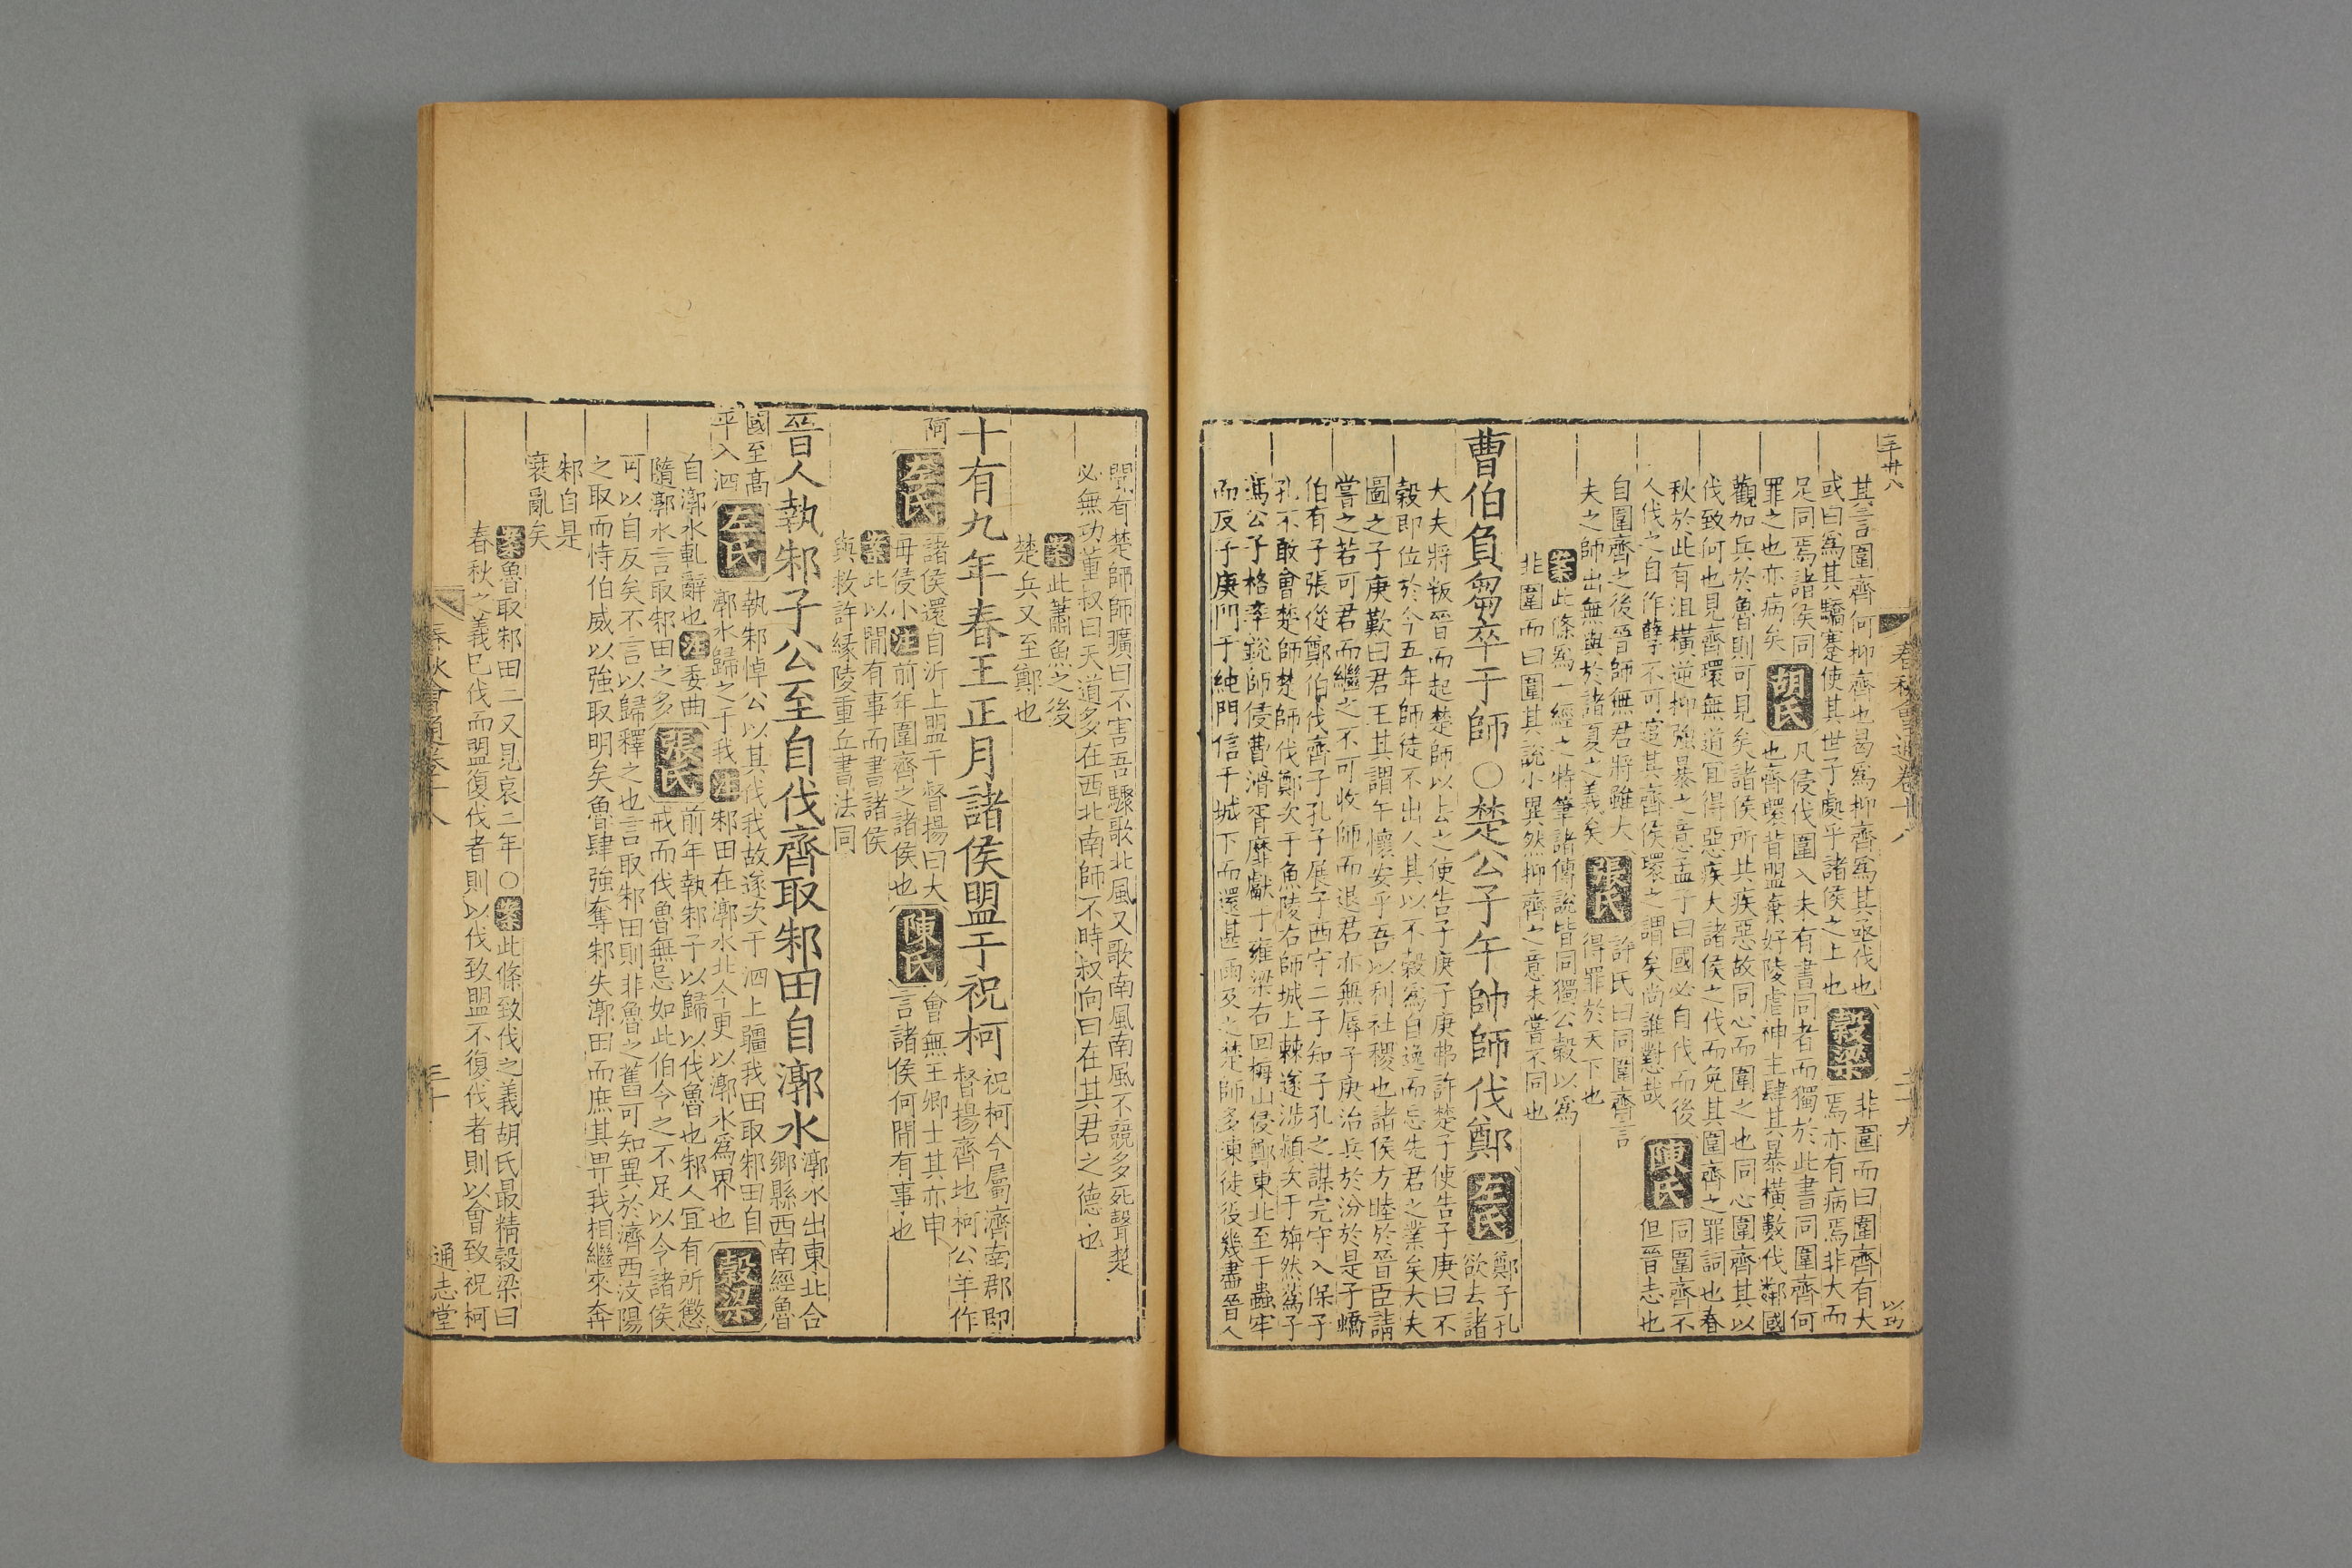 三千卅八
春秋會通卷十八
二十九
以巧
其言圍齊何抑齊也曷爲抑齊爲其亟伐也穀梁非圍而曰圍齊有大
或曰爲其驕蹇使其世子處乎諸侯之上也焉亦有病焉非大而
足同焉諸侯同胡氏凡侵伐圍入未有書同者而獨於此書同圍齊何
罪之也亦病矣也齊環背盟棄好陵虐神主肆其暴橫數伐鄰國
觀加兵於魯則可見矣諸侯所共疾惡故同心而圍之也同心圍齊其以
伐致何也見齊環無道宜得惡疾大諸侯之伐而免其圍齊之罪詞也春
秋於此有沮橫逆抑強暴之意孟子曰國必自伐而後陳氏同圍齊不
人伐之自作孽不可逭其齊侯環之謂矣尚誰懟哉但晉志也
自圍齊之後晉師無君將雖大張氏許氏曰同圍齊言
夫之師出無與於諸夏之義矣得罪於天下也
案此條爲一經之特筆諸傳說皆同獨公穀以爲
非圍而曰圍其說小異然抑齊之意未嘗不同也
曹伯負芻卒于師○楚公子午帥師伐鄭左氏鄭子孔
欲去諸
大夫將叛晉而起楚師以去之使告子庚子庚弗許楚子使告子庚曰不
穀即位於今五年師徒不出人其以不穀爲自逸而忘先君之業矣大夫
圖之子庚歎曰君王其謂午懷安乎吾以利社稷也諸侯方睦於晉臣請
嘗之若可君而繼之不可收師而退君亦無辱子庚治兵於汾於是子蟜
伯有子張從鄭伯伐齊子孔子展子西守二子知子孔之謀完守入保子
孔不敢會楚師楚師伐鄭次于魚陵右師城上棘遂涉潁次于旃然蒍子
馮公子格率銳師侵費滑胥靡獻于雍梁右回梅山侵鄭東北至于蟲牢
而反子庚門于純門信于城下而還甚雨及之楚師多凍徒役幾盡晉人
聞有楚師師曠曰不害吾驟歌北風又歌南風南風不競多死聲楚
必無功董叔曰天道多在西北南師不時叔向曰在其君之德也
案此蕭魚之後
楚兵又至鄭也
十有九年春王正月諸侯盟于祝柯祝柯今屬濟南郡即
督揚齊地柯公羊作
阿左氏諸侯還自沂上盟于督揚曰大陳氏會無王卿士其亦申
毋侵小注前年圍齊之諸侯也言諸侯何閒有事也
案此以閒有事而書諸侯
與救許緣陵重丘書法同
晉人執邾子公至自伐齊取邾田自漷水漷水出東北合
鄉縣西南經魯
國至高
平入泗左氏執邾悼公以其伐我故遂次于泗上疆我田取邾田自
漷水歸之于我注邾田在漷水北今更以漷水爲界也穀梁
自漷水軋辭也注委曲張氏前年執邾子以歸以伐魯也邾人宜有所懲
隨漷水言取邾田之多戒而伐魯無忌如此伯令之不足以令諸侯
可以自反矣不言以歸釋之也言取邾田則非魯之舊可知異於濟西汶陽
之取而恃伯威以強取明矣魯肆強奪邾失漷田而庶其畀我相繼來奔
邾自是
衰亂矣
案魯取邾田二又見哀二年○案此條致伐之義胡氏最精穀梁曰
春秋之義已伐而盟復伐者則以伐致盟不復伐者則以會致祝柯
春秋會通卷十八
三十
通志堂